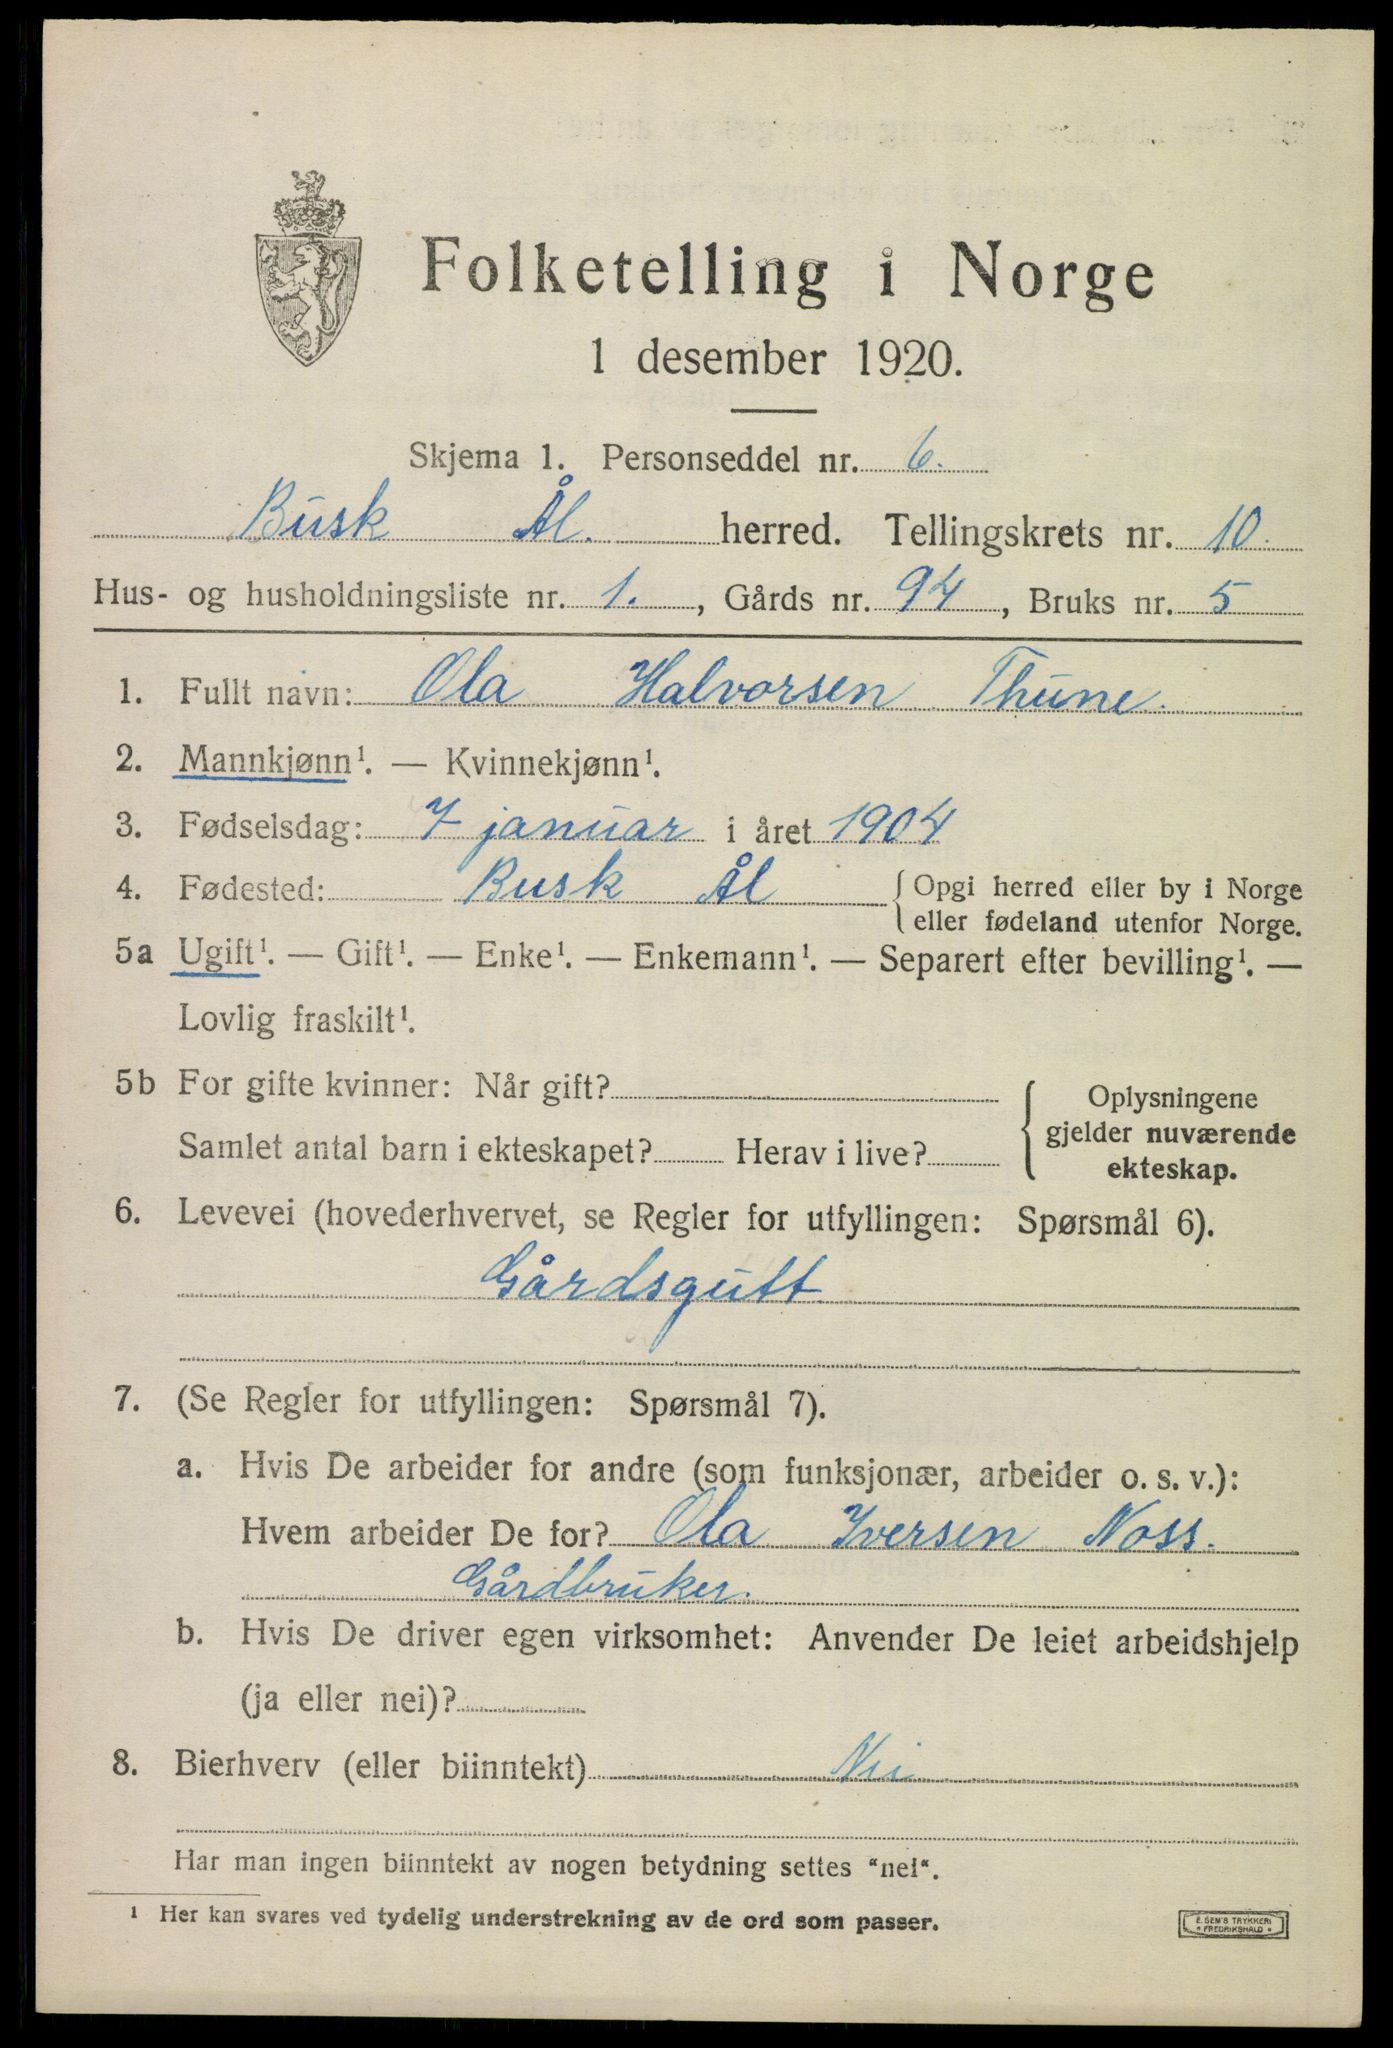 Folketelling i Norge
1 desember 1920.
Skjema 1. Personseddel nr. 6.
Busk Ål. herred. Tellingskrets nr. 10.
Hus- og husholdningsliste nr. 1., Gårds nr. 94, Bruks nr. 5
1. Fullt navn: Ola Halvorsen Thune.
2. Mannkjønn¹. — Kvinnekjønn¹.
3. Fødselsdag: 7 januar i året 1904
4. Fødested: Busk Ål { Opgi herred eller by i Norge
eller fødeland utenfor Norge.
5a Ugift¹. — Gift¹. — Enke¹. — Enkemann¹. — Separert efter bevilling¹. —
Lovlig fraskilt¹.
5b For gifte kvinner: Når gift?
Samlet antal barn i ekteskapet? Herav i live?
Oplysningene
gjelder nuværende
ekteskap.
6. Levevei (hovederhvervet, se Regler for utfyllingen: Spørsmål 6).
Gårdsgutt
7. (Se Regler for utfyllingen: Spørsmål 7).
a. Hvis De arbeider for andre (som funksjonær, arbeider o. s. v.):
Hvem arbeider De for? Ola Iversen Noss.
Gårdbruker.
b. Hvis De driver egen virksomhet: Anvender De leiet arbeidshjelp
(ja eller nei)?
8. Bierhverv (eller biinntekt) Nei
Har man ingen biinntekt av nogen betydning settes "nei".
¹ Her kan svares ved tydelig understrekning av de ord som passer.
E. SEM'S TRYKKERI
* FREDRIKSHALD *